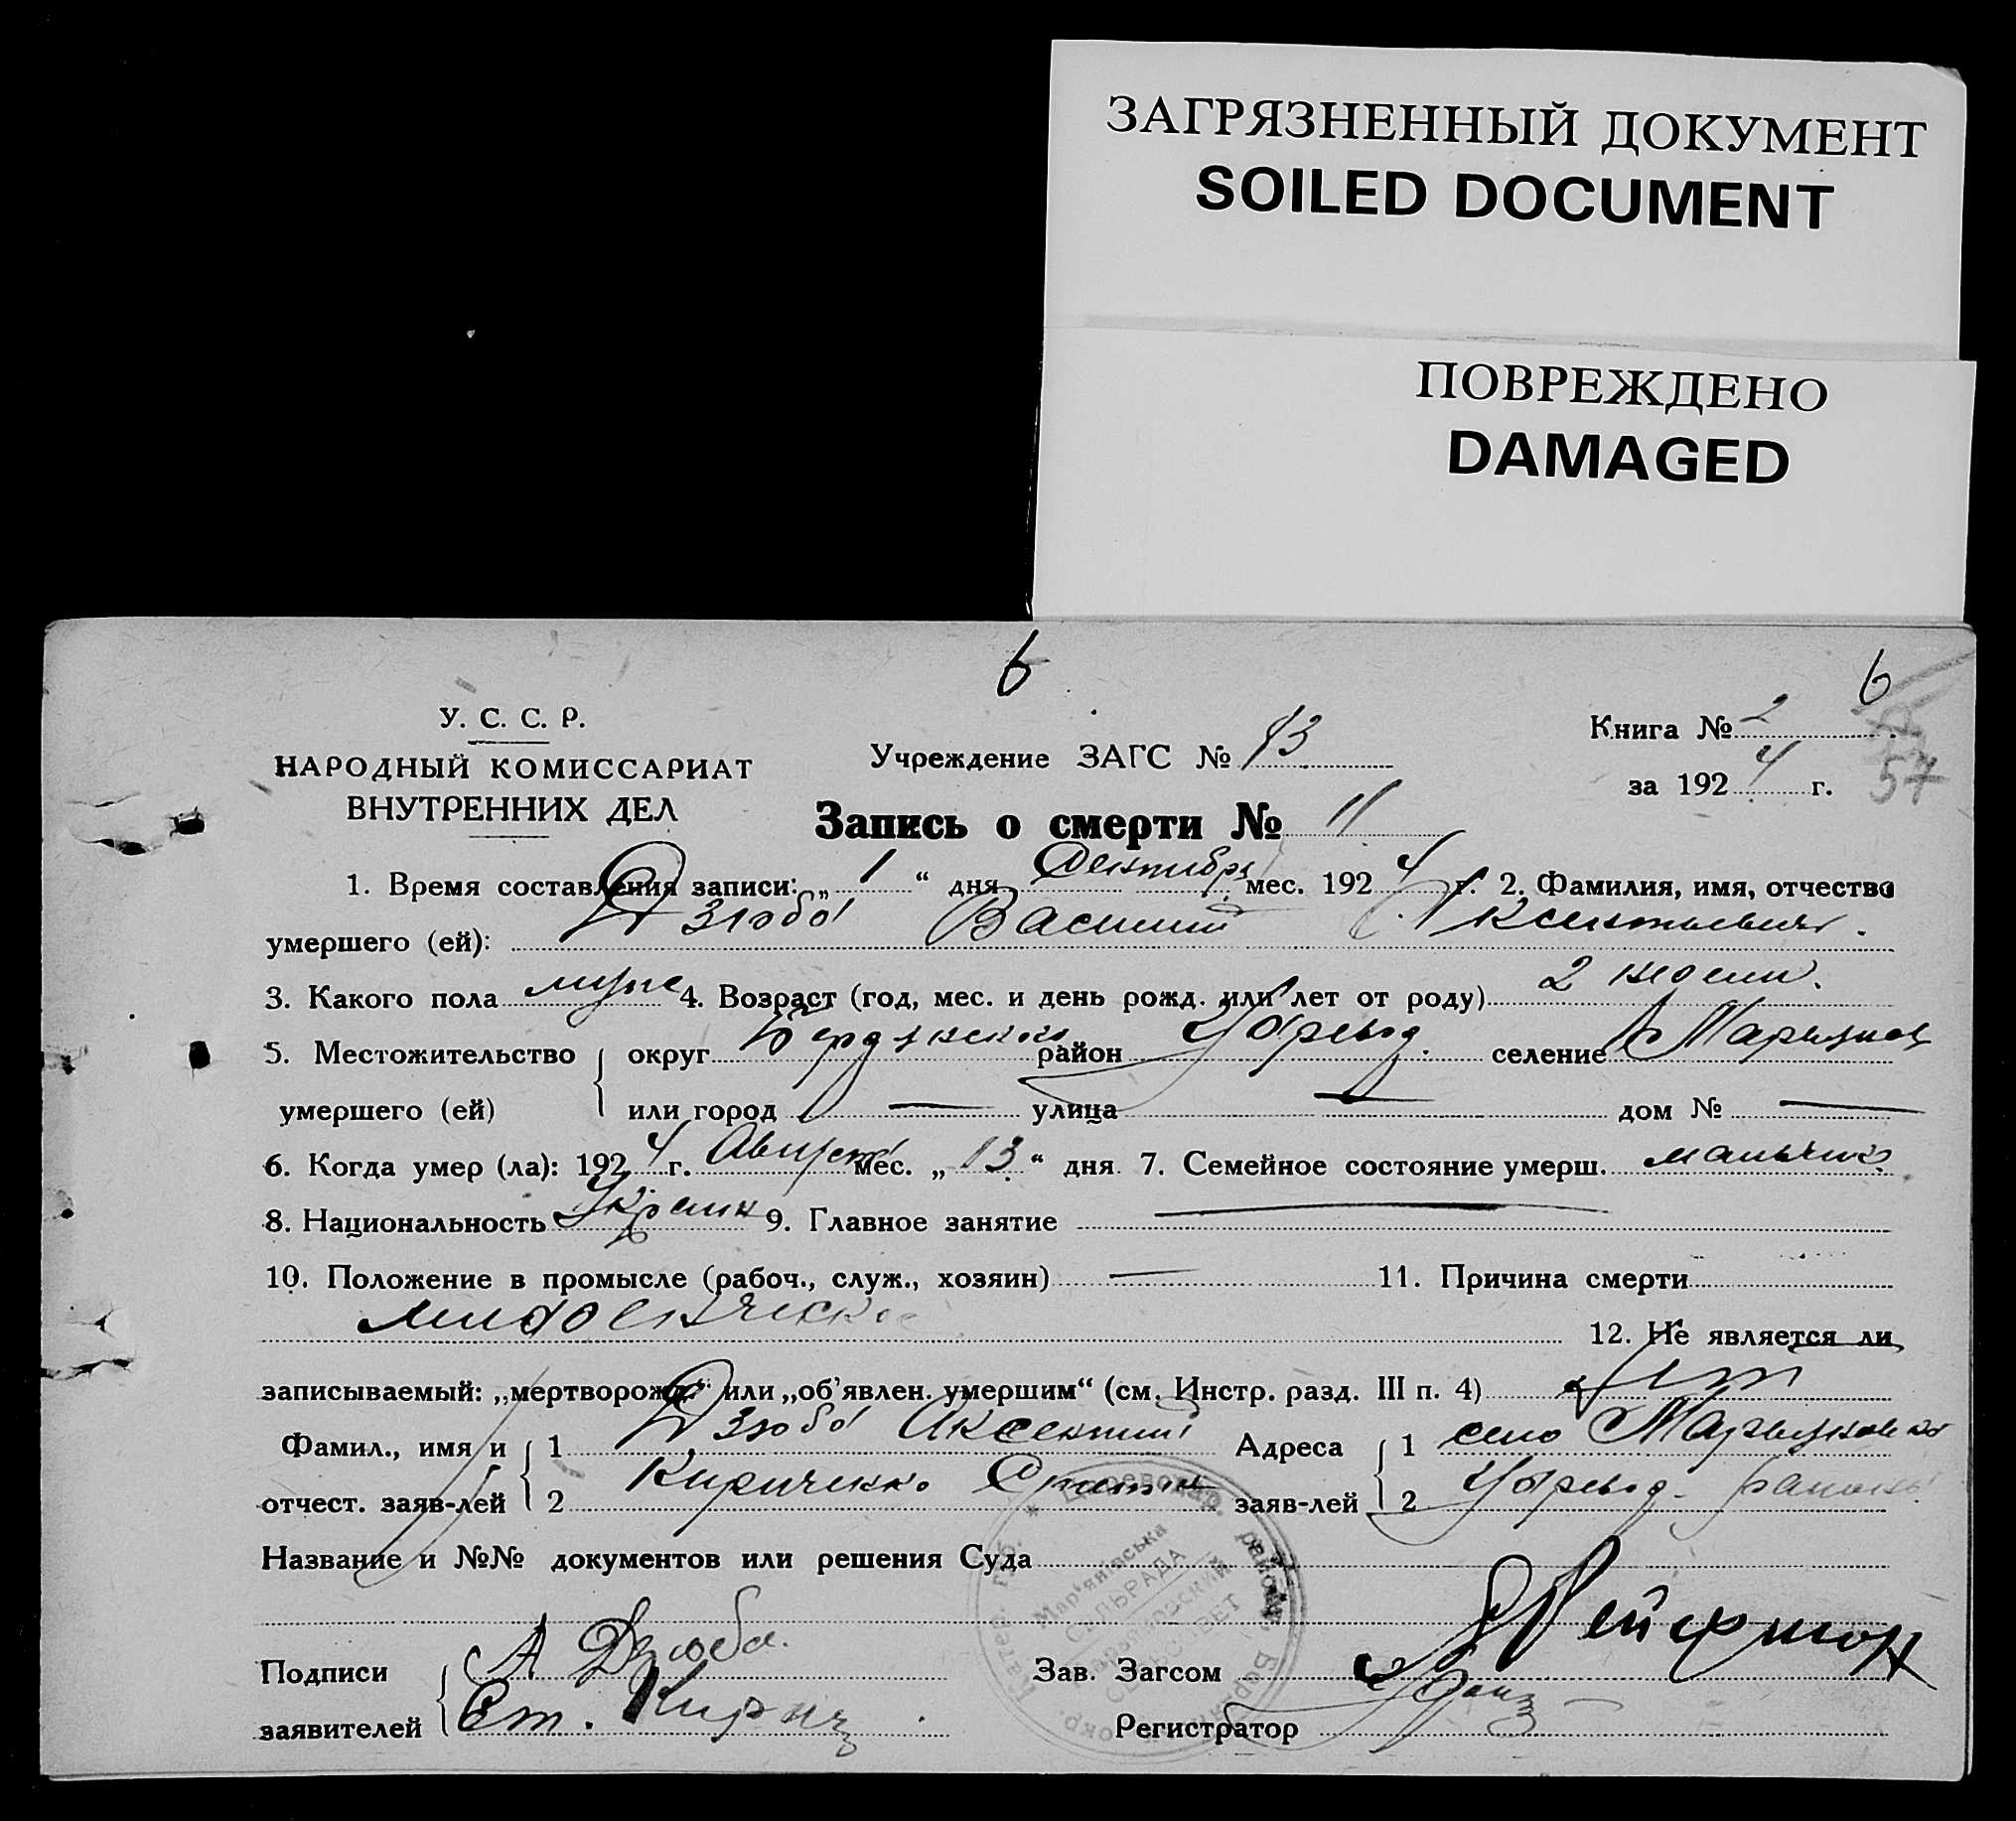 ЗАГРЯЗНЕННЫЙ ДОКУМЕНТ
SOILED DOCUMENT
ПОВРЕЖДЕНО
DAMAGED
6 6
У. С. С. Р.
НАРОДНЫЙ КОМИССАРИАТ
ВНУТРЕННИХ ДЕЛ
Учреждение ЗАГС № 13
Книга № 2
за 1924 г.
57
Запись о смерти № 11
1. Время составления записи: „ 1 “ дня Сентября мес. 1924 г. 2. Фамилия, имя, отчество
умершего (ей): Дзюба Василий Аксентьевич.
3. Какого пола муж 4. Возраст (год, мес. и день рожд. или лет от роду) 2 недели.
5. Местожительство округ Бердянский район Цареводар. селение
умершего (ей) или город — улица — дом № —
6. Когда умер (ла): 1924 г. Августа мес. „ 13 “ дня 7. Семейное состояние умерш. мальчик
8. Национальность Украин 9. Главное занятие —
10. Положение в промысле (рабоч., служ., хозяин) — 11. Причина смерти
младенческая
12. Не является ли
записываемый: „мертворожд“ или „об’явлен. умершим“ (см. Инстр. разд. III п. 4) Нет
Фамил., имя и 1 Дзюба Аксентий Адреса 1 село
отчест. заяв-лей 2 Кириченко заяв-лей 2 района
Название и №№ документов или решения Суда
Мар'янівська
СІЛЬРАДА
Подписи А Дзюба. Зав. Загсом
заявителей Ст. Регистратор